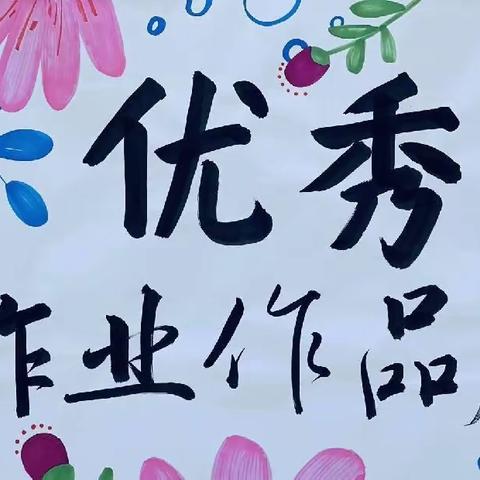 优秀
作业作品